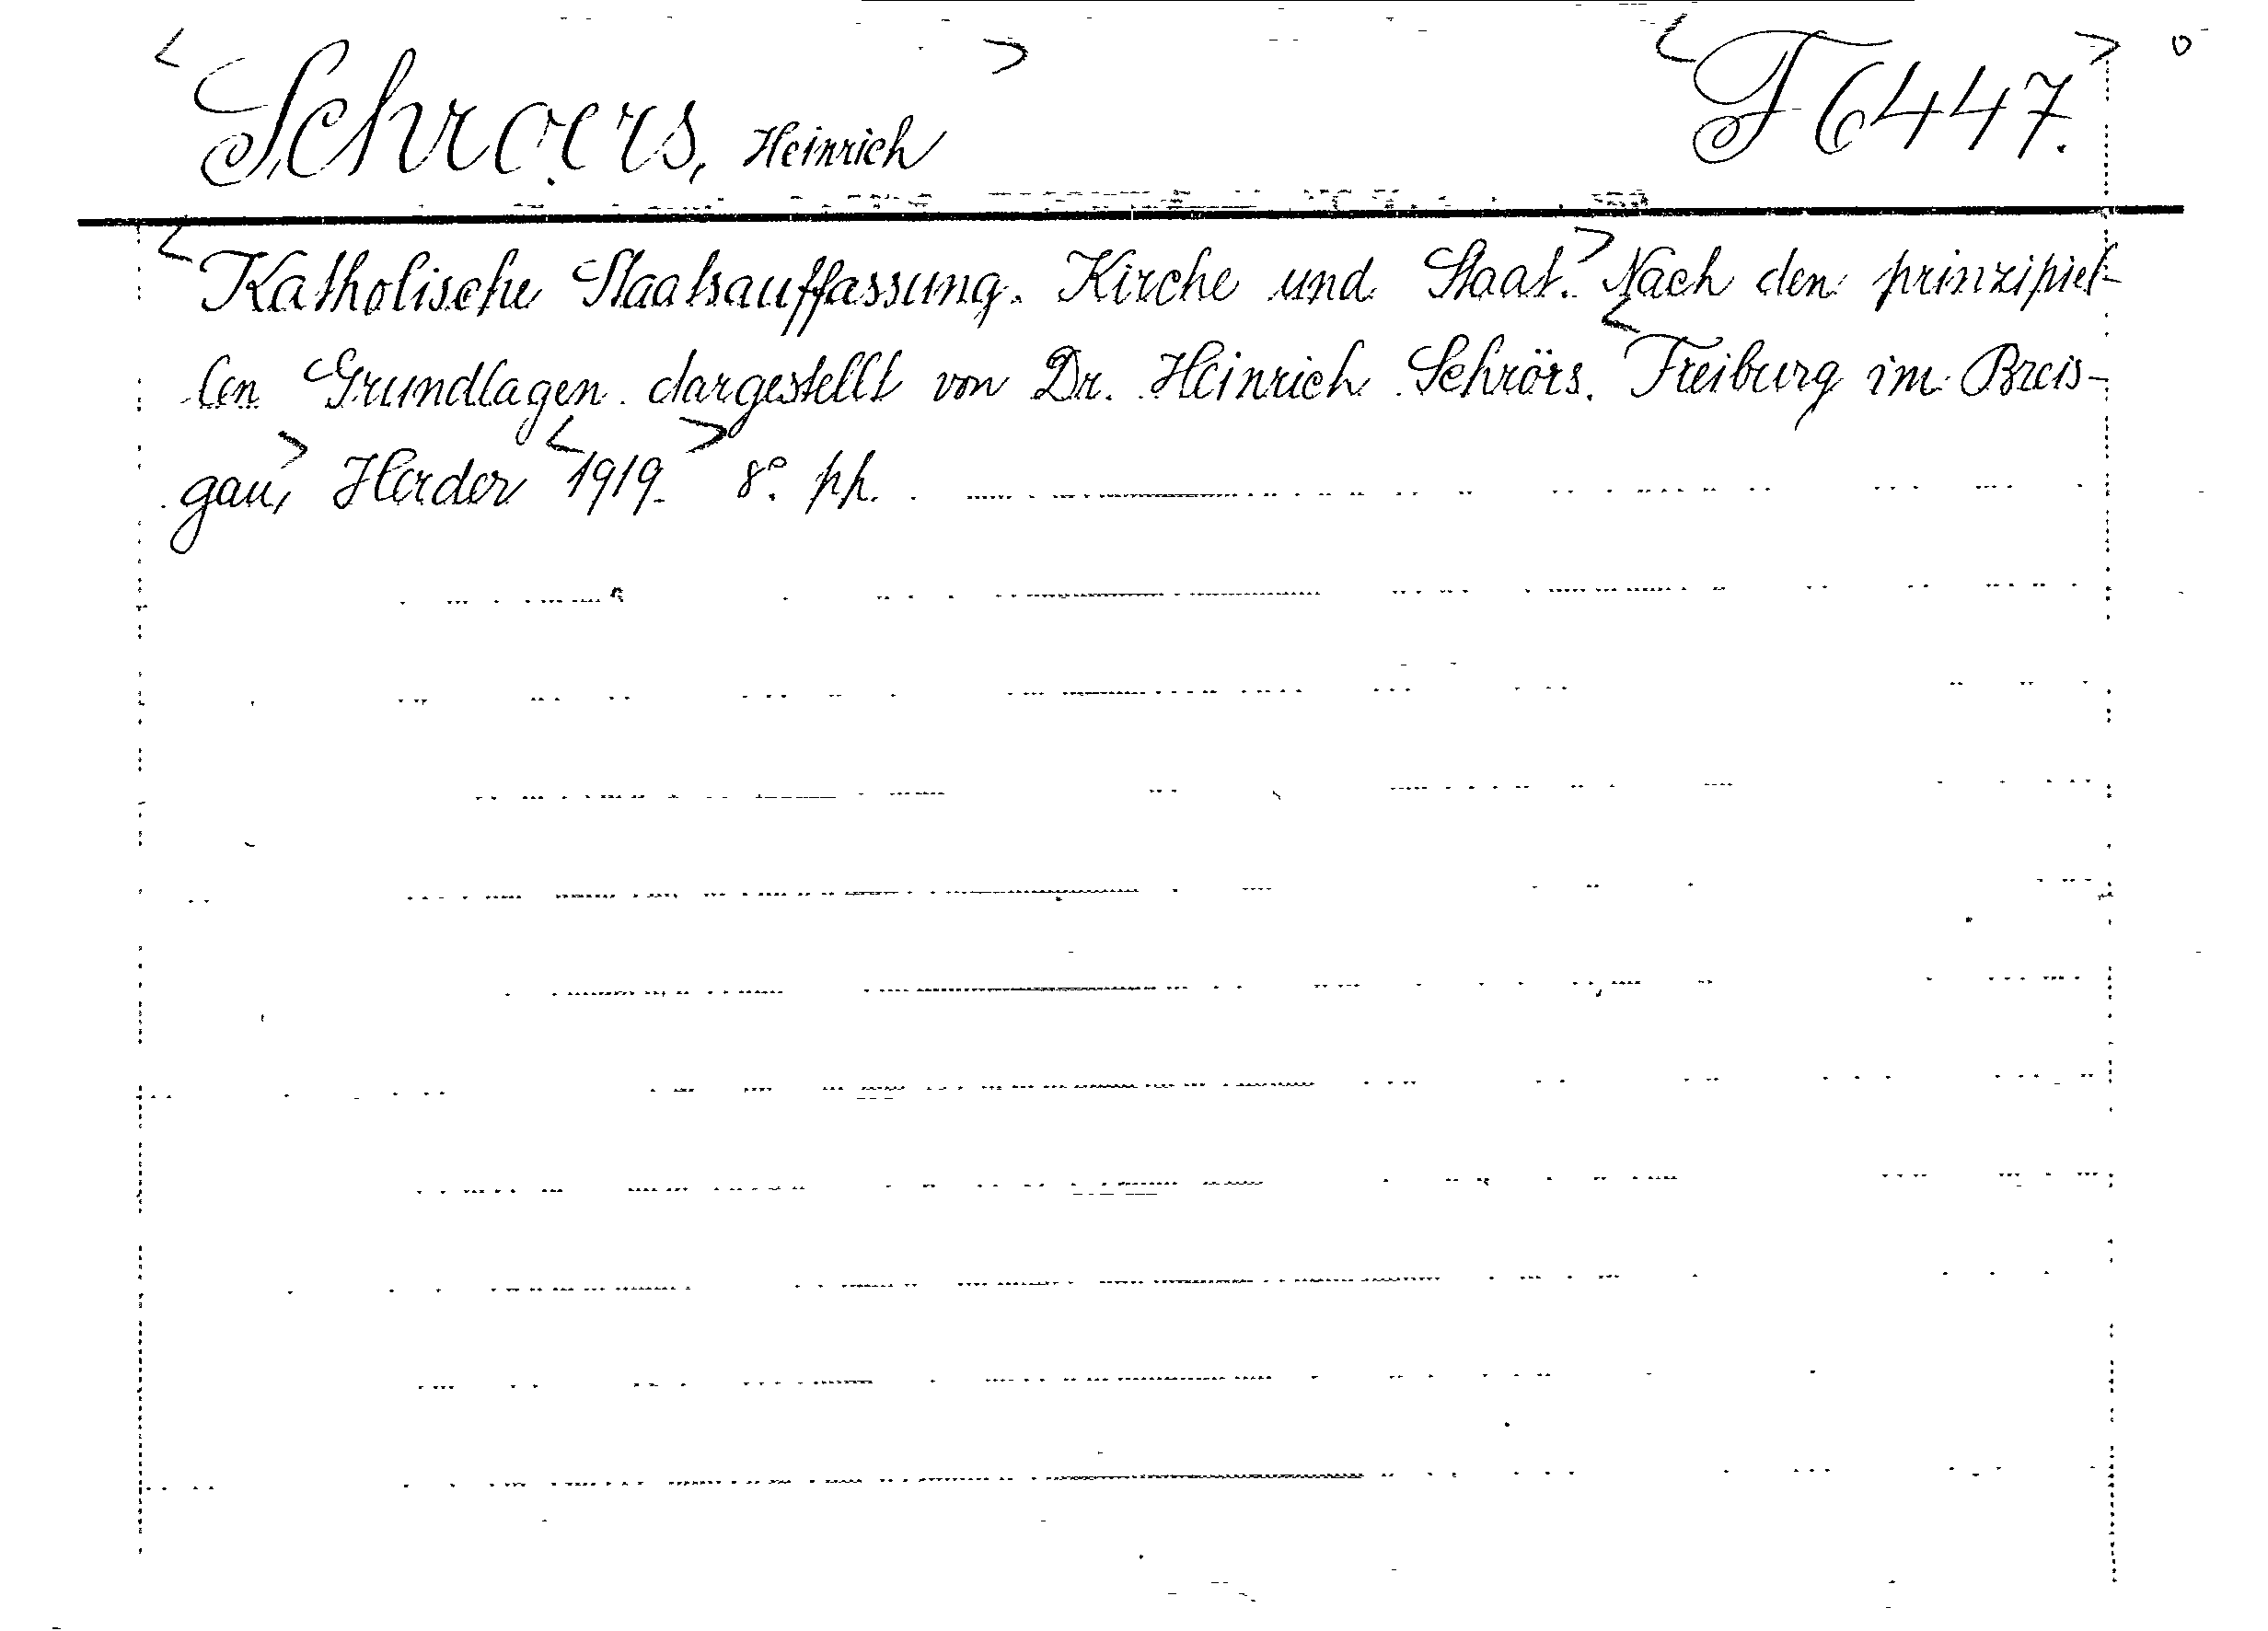 <Schroers, Heinrich> <F 6447.> 0
<Katholische Staatsauffassung. Kirche und Staat.> Nach den prinzipiel-
len Grundlagen dargestellt von Dr. Heinrich Schrörs. <Freiburg im Breis-
gau,> Herder <1919.> 8°. ph.